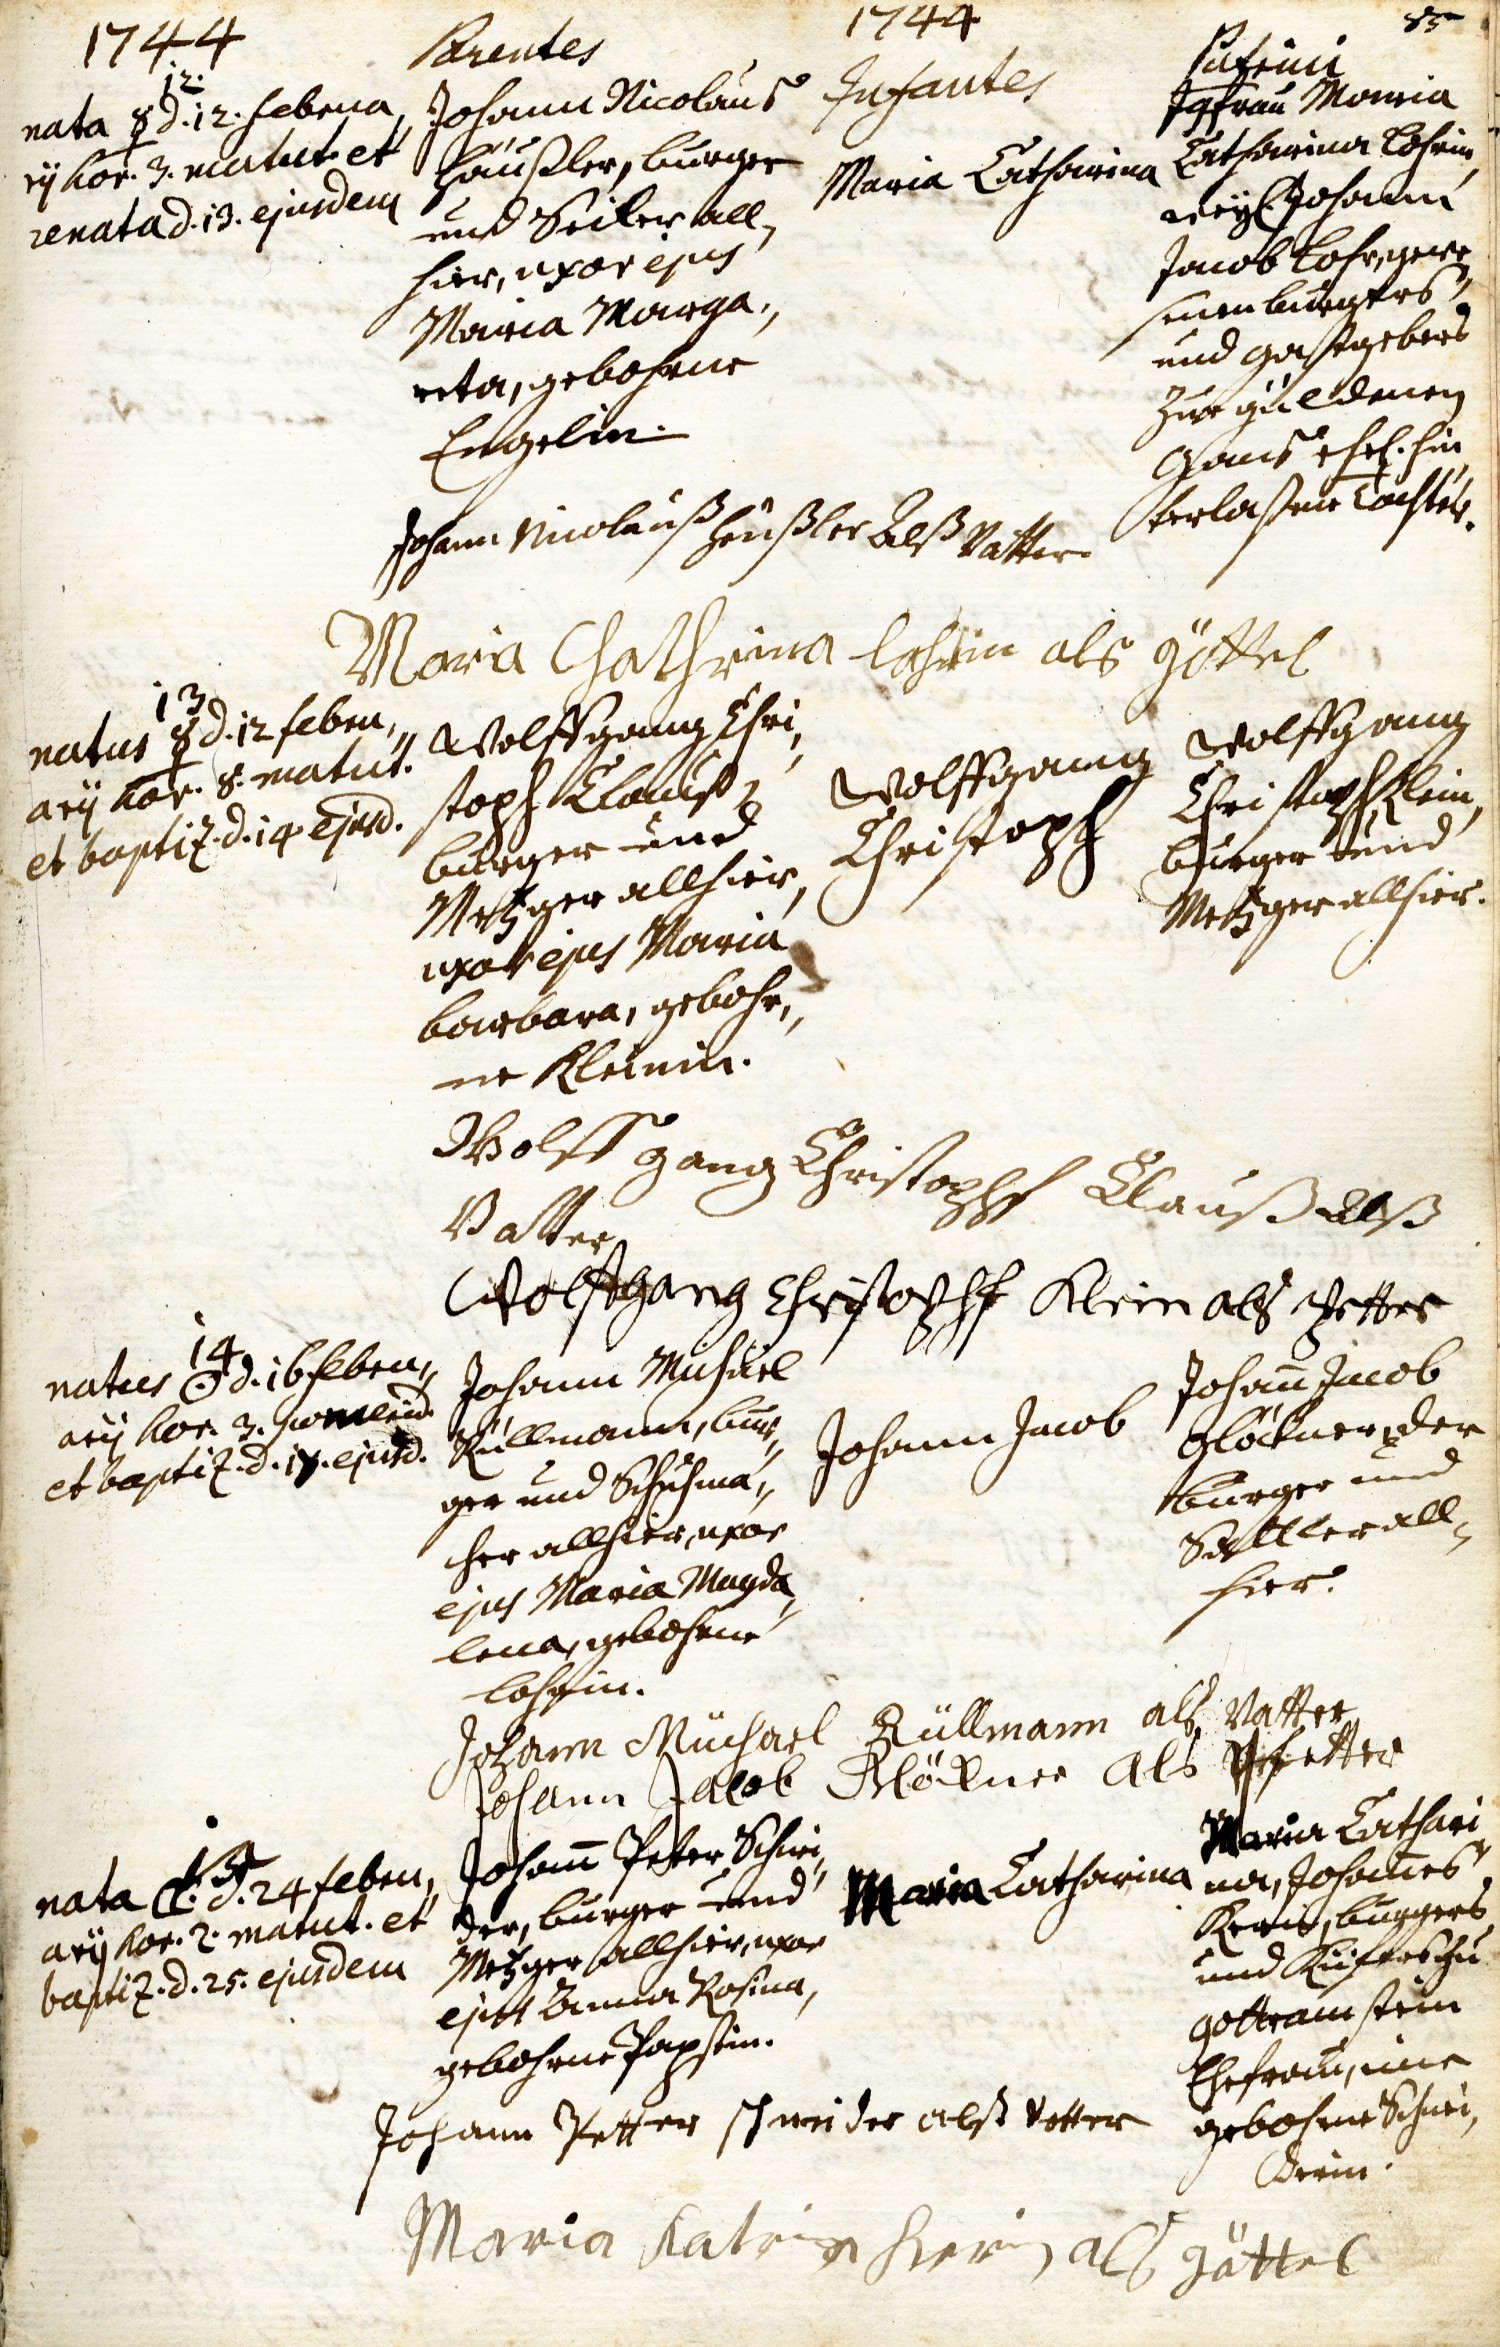 1744
Parentes
1744
Infantes
Patrini
85
12.
nata ☿ d. 12. februa,,
rÿ hor. 3. matut. et
renata d. 13. ejusdem
Johann Nicolaus
Häußler, burger
und Seiler all,
hier, uxor ejus
Maria Marga,,
reta, gebohrne
Engelin.
Maria Catharina
Jgfrau Maria
Catharina Lohrin,
weyl. Johann
Jacob Lohr, gewe,
senen burgers
und gastgebers
zur güldenen
Gans ehel. hin,
terlaßene Tochter.
Johann Nicolauß Heußler Alß Vatter
Maria Chathrina lohrin als göttel
13
natus ☿ d. 12 febru,,
arÿ hor. 8. matut.
et baptiz. d. 14 ejusd.
Wolffgang Chri,
stoph Clauß,
burger und
Metzger allhier,
uxor ejus Maria
barbara, gebohr,,
ne Kleinin.
Wolffgang
Christoph
Wolffgang
Christoph Klein,
burger und
Metzger allhier.
Wolff gang Christophf Clauß alß
Vatter
Wolffgang Christophf Klein als petter
14
natus ☉ d. 16 febru,,
arÿ hor. 3. pomerid.
et baptiz. d. 18. ejusd.
Johann Michael
Rüllmann, bur,,
ger und Schuhma,,
cher allhier, uxor
ejus Maria Magda,
lena, gebohrne
Lohrin.
Johann Jacob
Johan̄ Jacob
Glöckner, der
burger und
Sattler all,
hier.
Johann Müchael Rüllmann als Vatter
Johann Jacob Glöckner als Pfetter
15
nata ☾ d. 24 febru,,
arÿ hor. 2. matut. et
baptiz. d. 25. ejusdem
Johan̄ Peter Schnei,
der, burger und
Metzger allhier, uxor
ejus Anna Rosina,
gebohrne Papstin.
Maria Catharina
Maria Cathari
na, Johan̄es
Kern, burgers
und Küfers zu
Gottramstein
Ehefrau, eine
gebohrne Schnei,
derin.
Johann Petter schneider alß Vatter
Maria Katrina Kerin als göttel